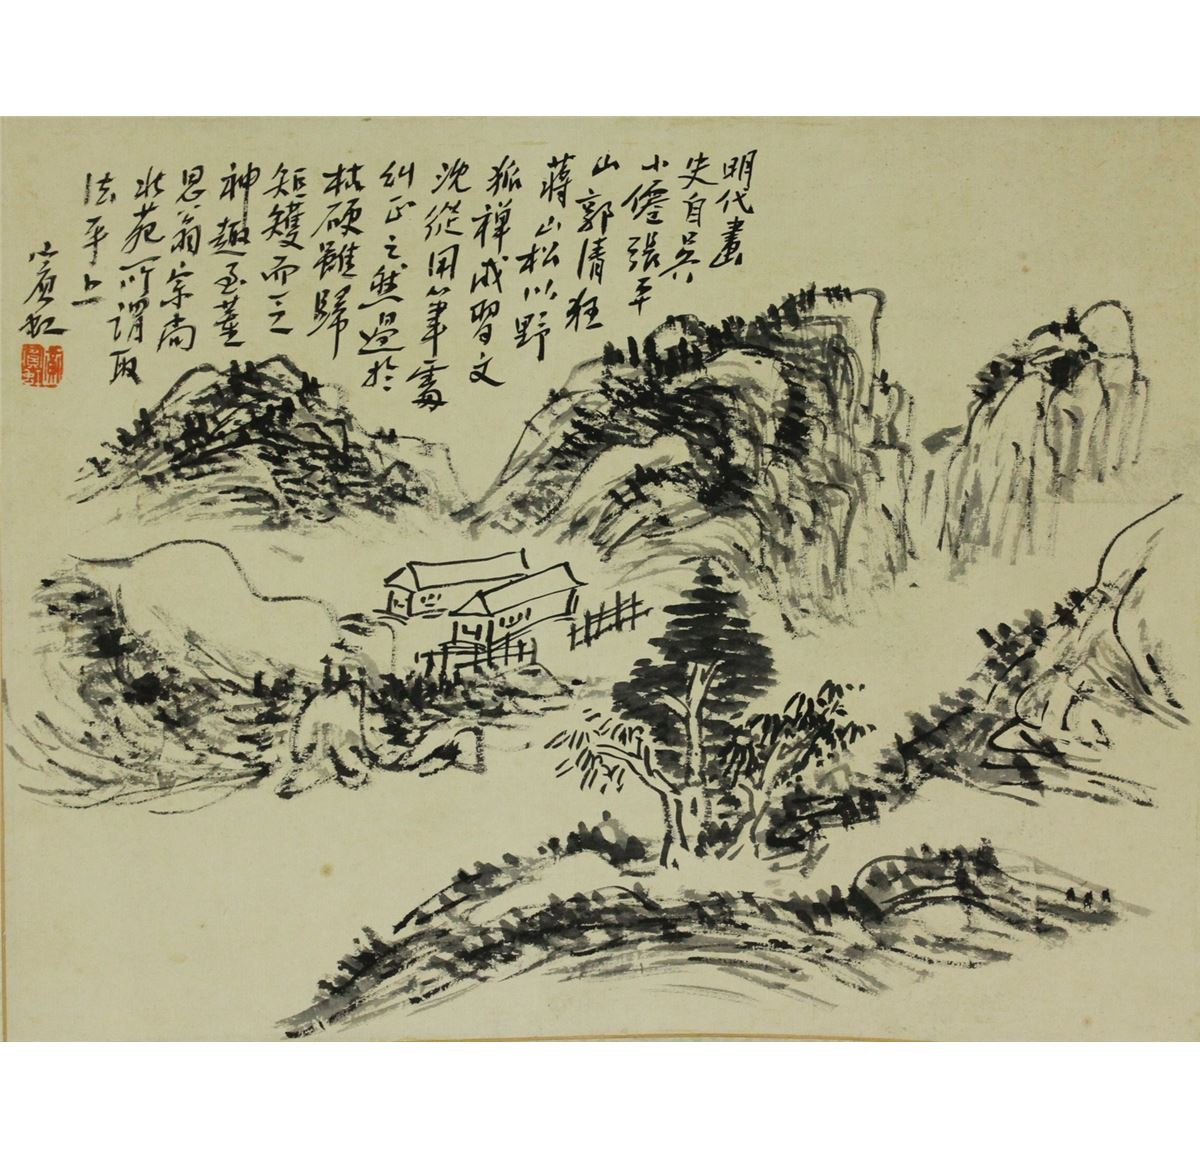 明代畫
史自吳
小僊張平
山郭清狂
蔣山松以野
狐禪成習文
沈從用筆
糾正之然過於
枯硬雖歸
矩矱而乏
神趣至董
思翁宗尚
北苑所謂取
法乎上
賓虹